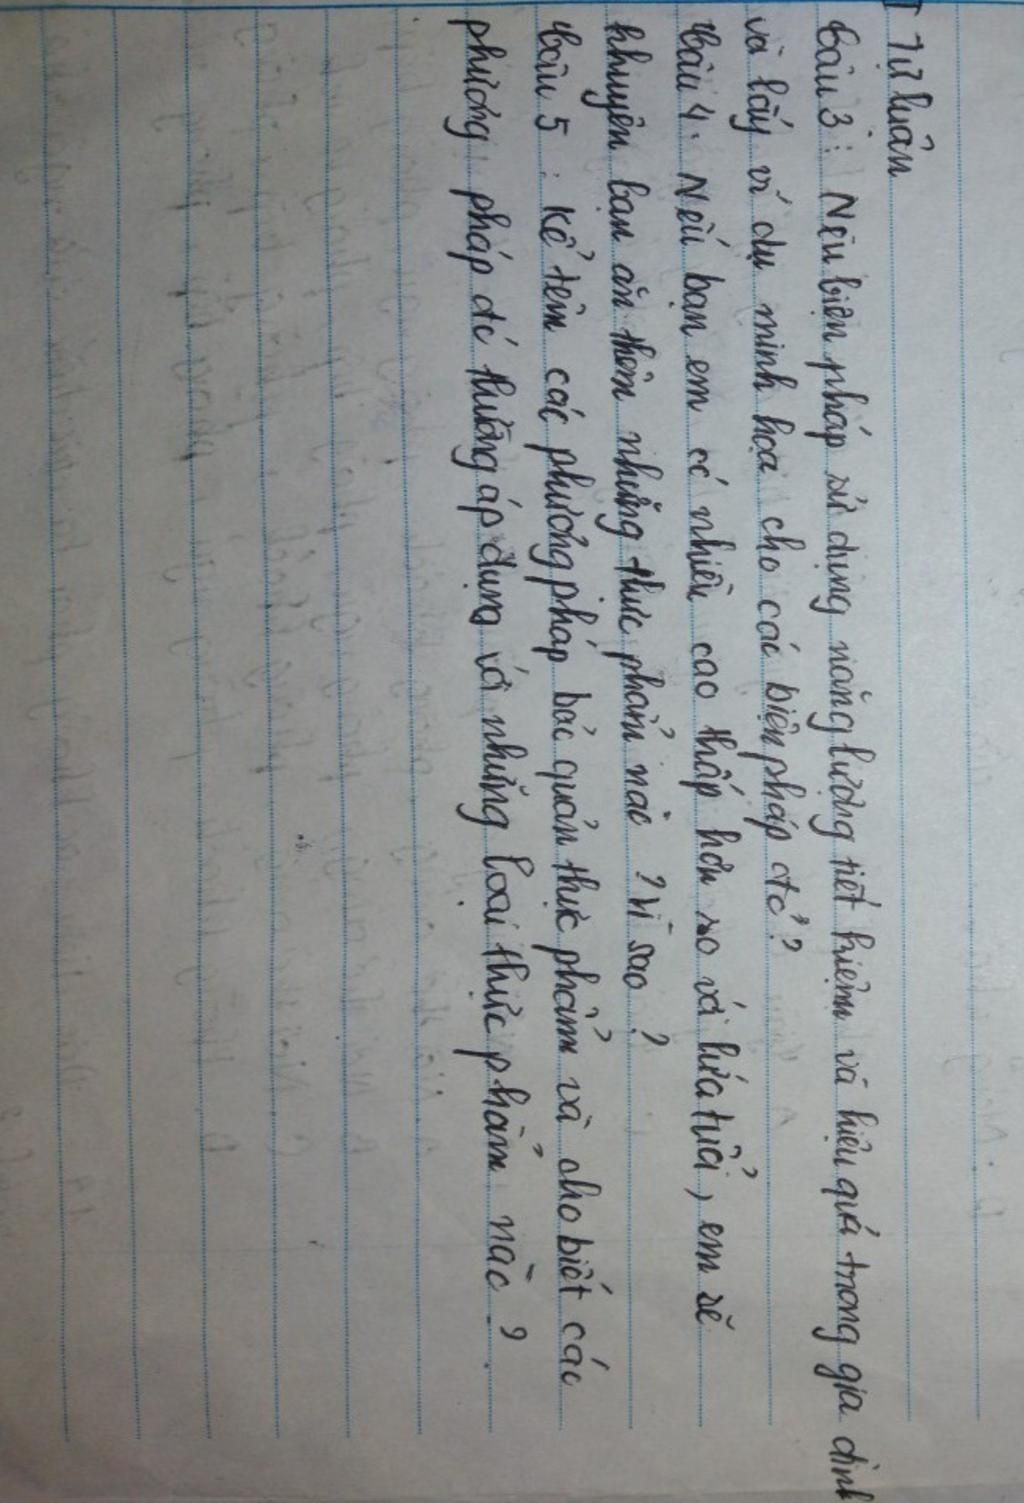 I Tự luận
Câu 3: Nêu biện pháp sử dụng năng lượng tiết kiệm và hiệu quả trong gia đình
và lấy ví dụ minh họa cho các biện pháp đó?
Câu 4. Nếu bạn em có nhiều cao thấp hơn so với lứa tuổi, em sẽ
khuyên bạn ăn thêm những thực phẩm nào? Vì sao?
Câu 5: Kể tên các phương pháp bảo quản thực phẩm và cho biết các
phương pháp đó thường áp dụng với những loại thực phẩm nào?